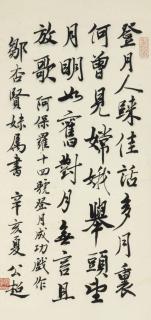 登月人踩佳話多月裏
何曾見嫦娥舉頭望
月明如舊對月無言且
放歌 阿保羅十四號登月成功戲作
鄒杏賢妹屬書 辛亥夏 公超